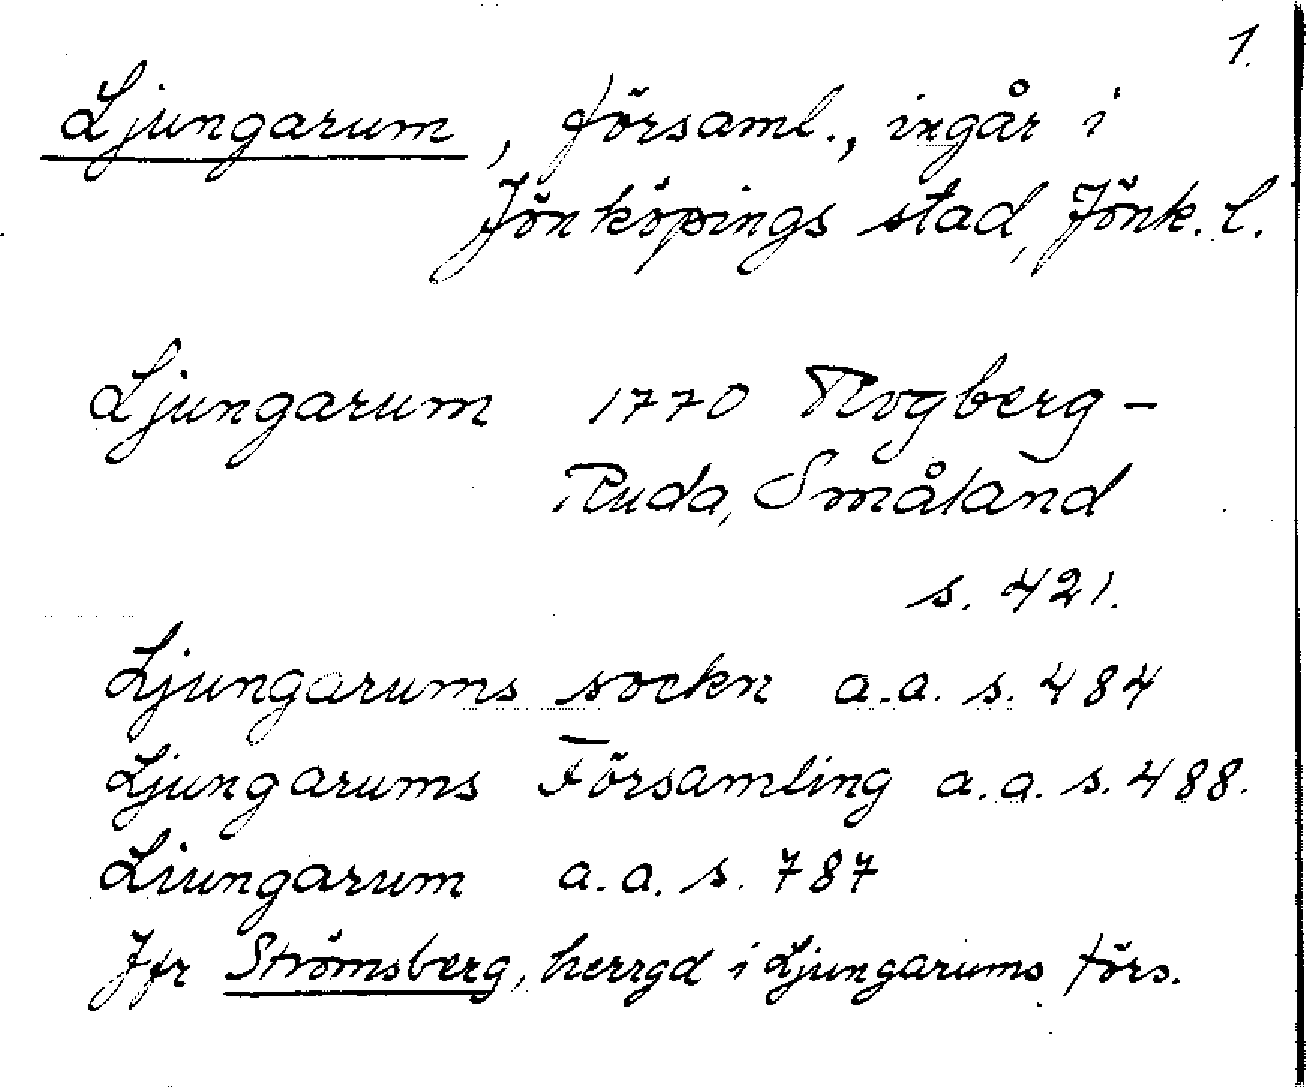 1.
Ljungarum, församl., ingår i
Jönköpings stad, Jönk. l.
Ljungarum 1770 Rogberg-
Ruda, Småland
s. 421.
Ljungarums sockn a.a. s. 484
Ljungarums Församling a.a. s. 488.
Liungarum a.a. s. 787
Jfr Strömsberg, herrgd i Ljungarums förs.